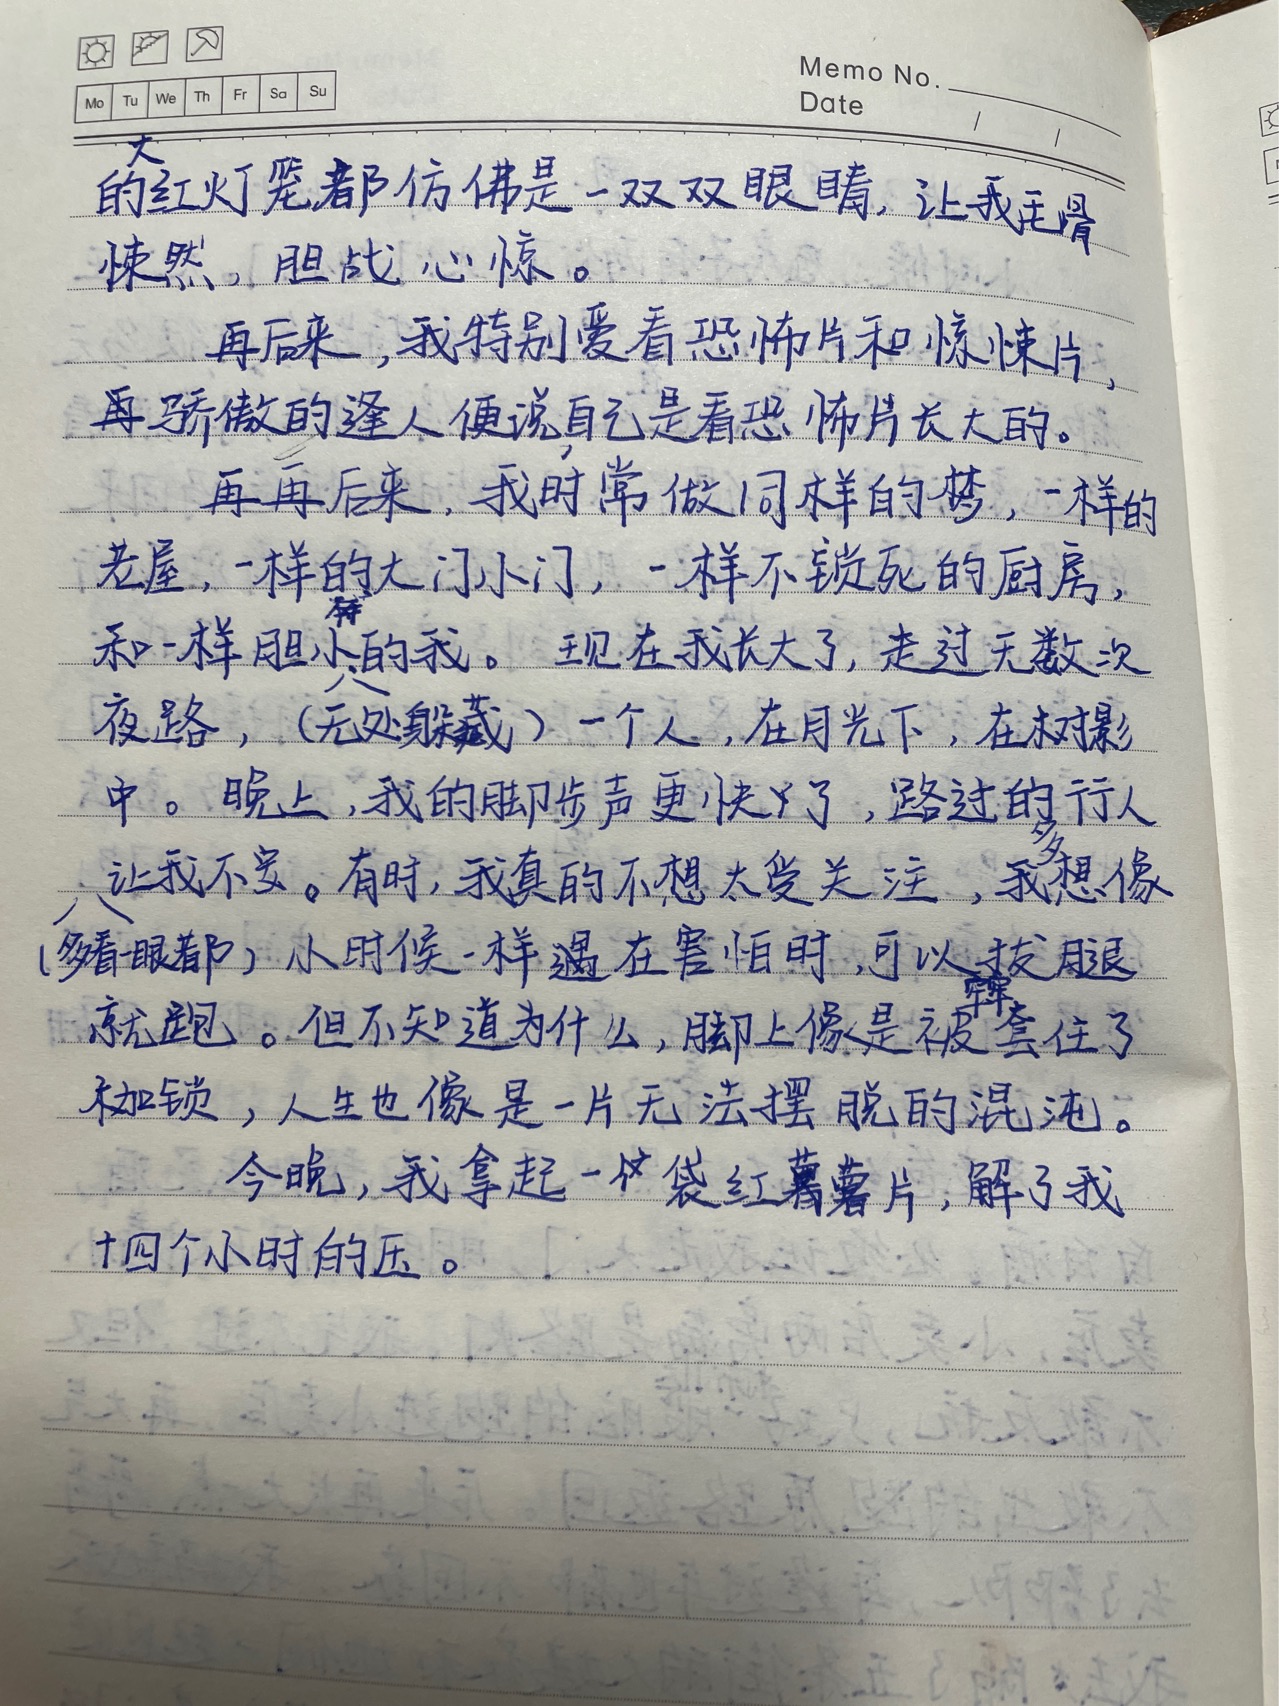 Mo Tu We Th Fr Sa Su
Memo No.
Date / /
大
的红灯笼都仿佛是一双双眼睛，让我毛骨
悚然，胆战心惊。
再后来，我特别爱看恐怖片和惊悚片，
再骄傲的逢人便说，自己是看恐怖片长大的。
再再后来，我时常做同样的梦，一样的
老屋，一样的大门小门，一样不锁死的厨房，
和一样胆小的我。现在我长大了，走过无数次
夜路，（无处躲藏）一个人，在月光下，在树影
中。晚上，我的脚步声更快了，路过的行人
让我不安。有时，我真的不想太受关注，我多想像
（多看一眼都）小时候一样遇在害怕时，可以拔腿
就跑。但不知道为什么，脚上像是被牢牢套住了
枷锁，人生也像是一片无法摆脱的混沌。
今晚，我拿起一袋红薯薯片，解了我
十四个小时的压。